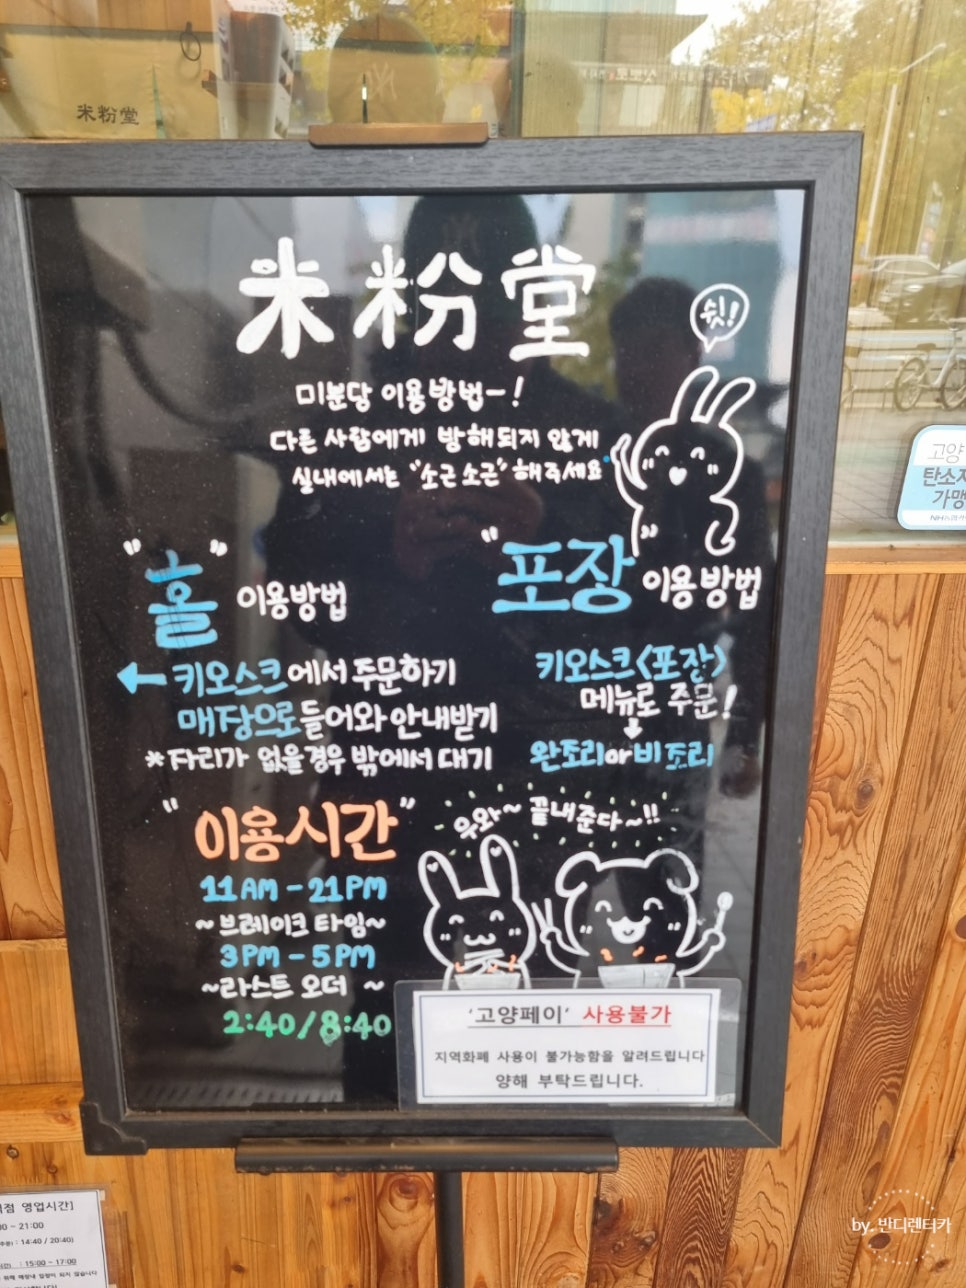 米粉堂
米粉堂
쉿!
미분당 이용방법-!
다른 사람에게 방해되지 않게
실내에서는 "소근소근" 해주세요
"홀" 이용방법
← 키오스크에서 주문하기
매장으로 들어와 안내받기
*자리가 없을경우 밖에서 대기
"포장" 이용방법
키오스크<포장>
메뉴로 주문!
↓
완조리or비조리
"이용시간"
11AM-21PM
~브레이크 타임~
3PM-5PM
~라스트 오더 ~
2:40/8:40
우와~ 끝내준다~!!
'고양페이' 사용불가
지역화폐 사용이 불가능함을 알려드립니다
양해 부탁드립니다.
고양
탄소지
가맹
영업시간]
~ 21:00
: 14:40 / 20:40)
: 15:00 ~ 17:00
by. 반디렌터카